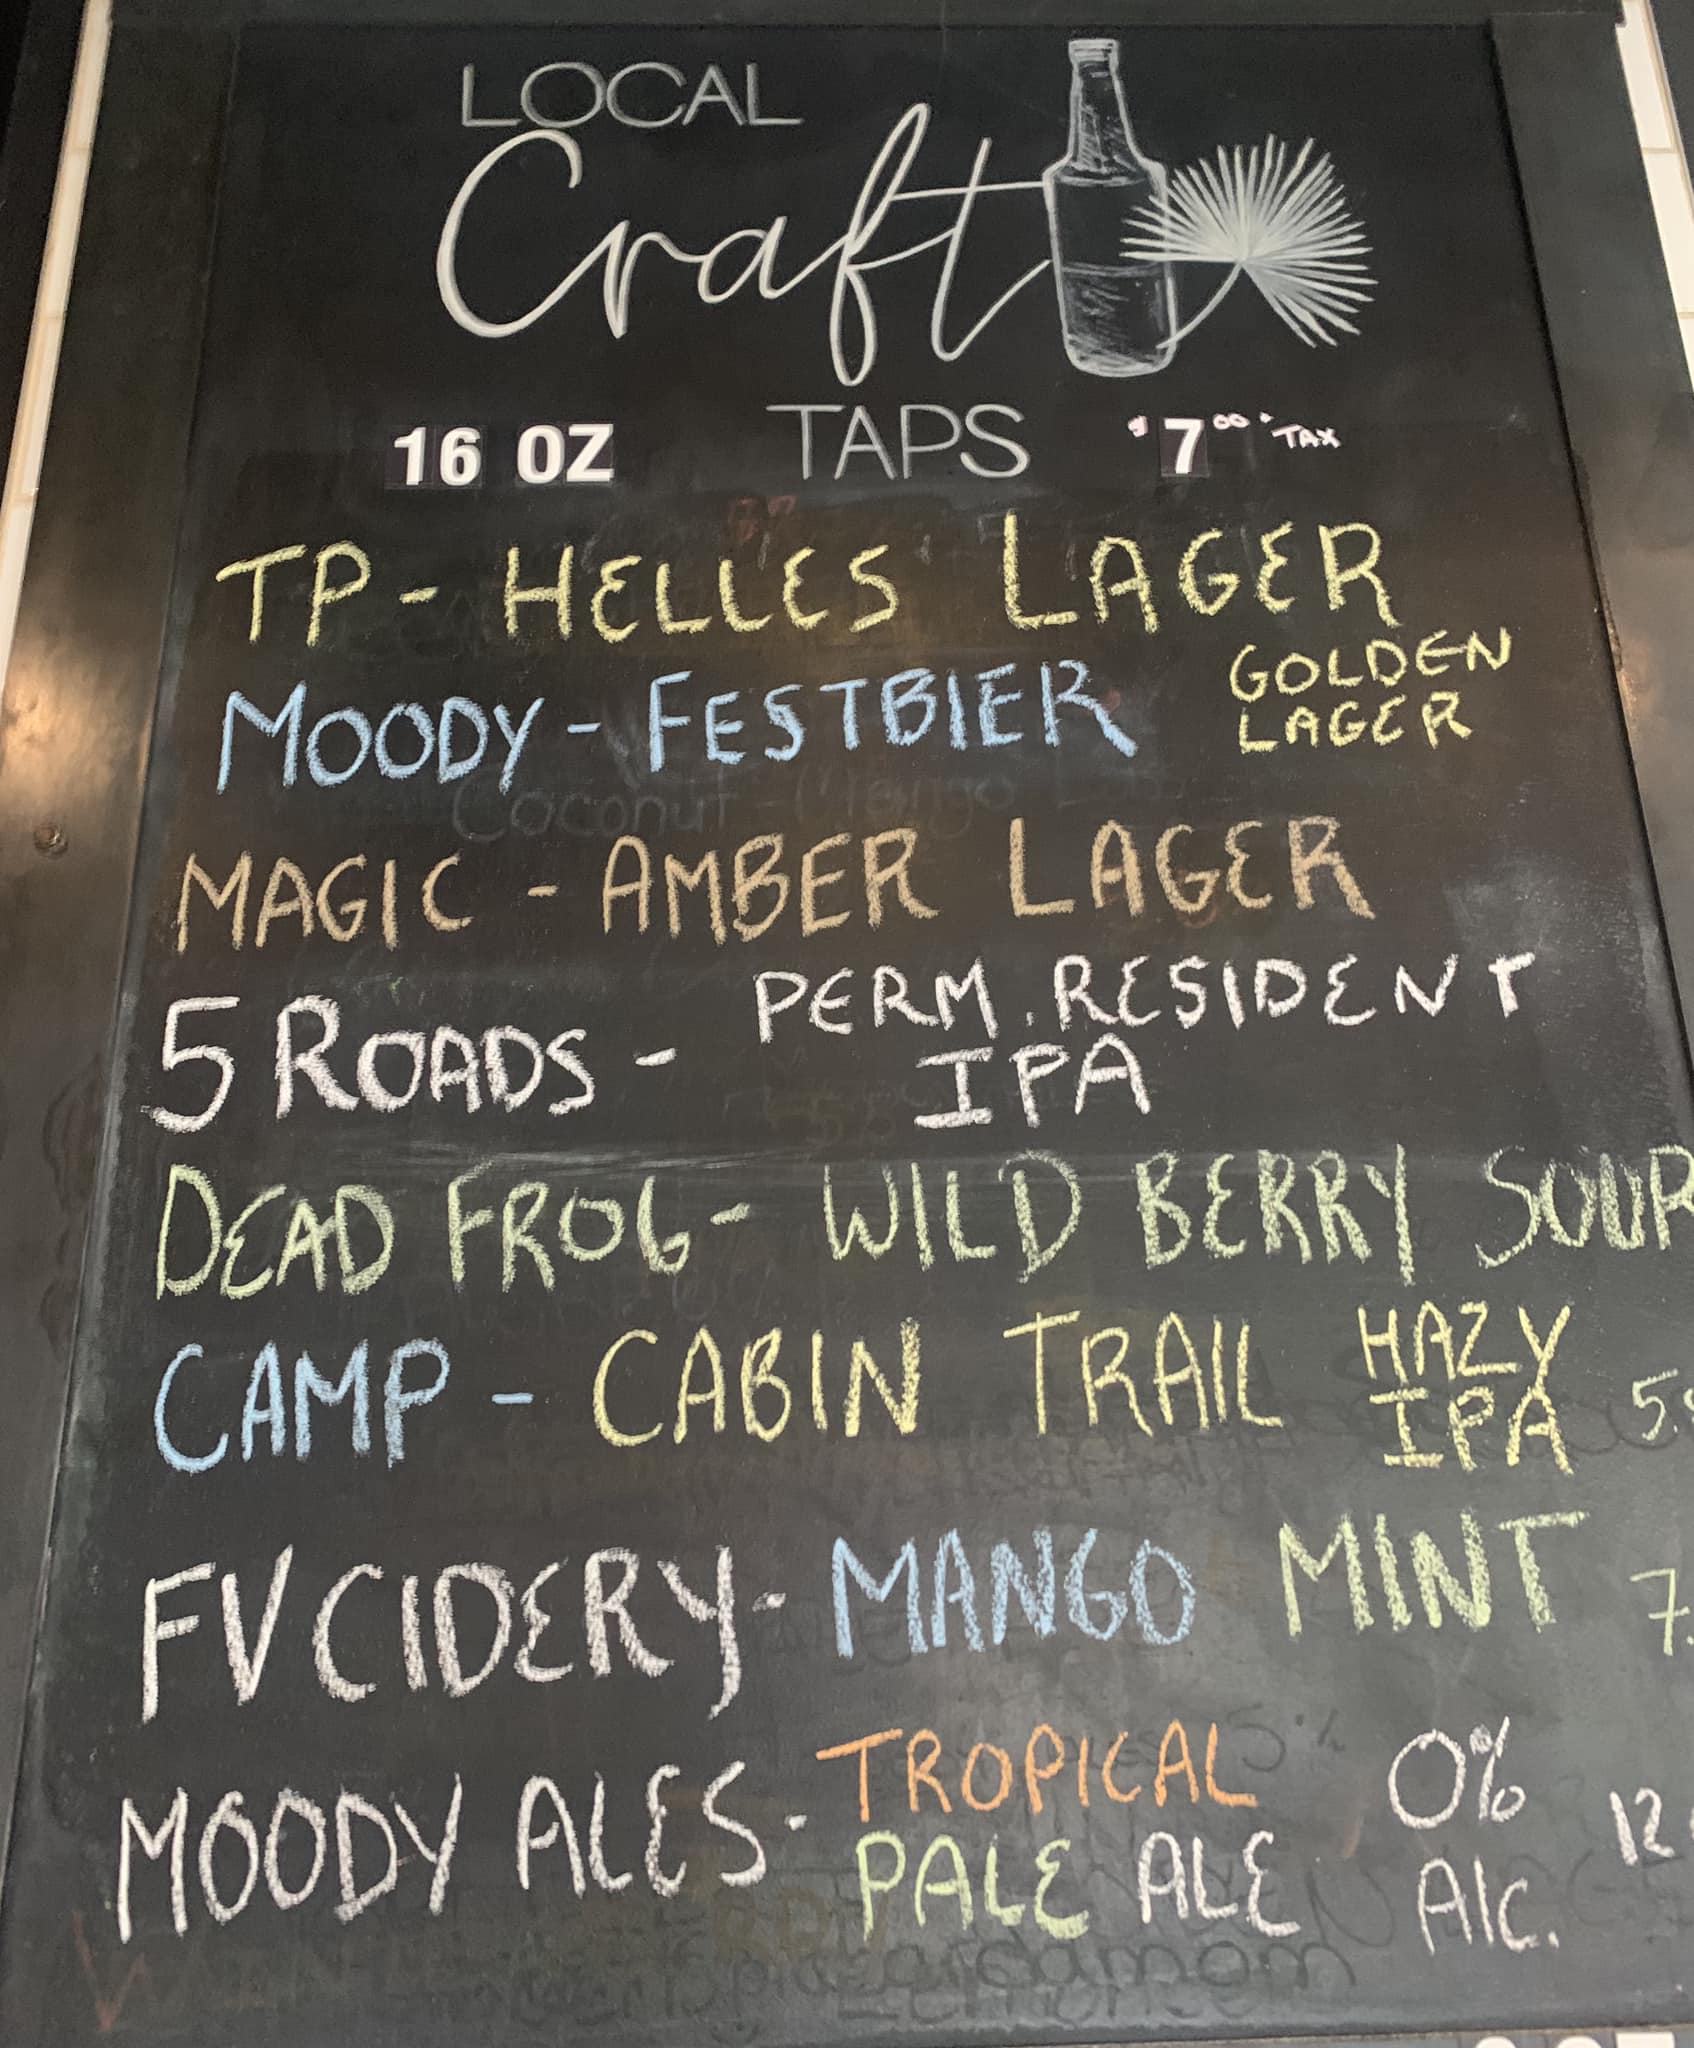 LOCAL
Craft
16 OZ TAPS $7.00 + TAX
TP - HELLES LAGER
MOODY - FESTBIER GOLDEN
LAGER
MAGIC - AMBER LAGER
5 ROADS - PERM. RESIDENT
IPA
DEAD FROG - WILD BERRY SOUR
CAMP - CABIN TRAIL HAZY
IPA 5.
FV CIDERY - MANGO MINT 7.
MOODY ALES - TROPICAL 0%
PALE ALE Alc. 12